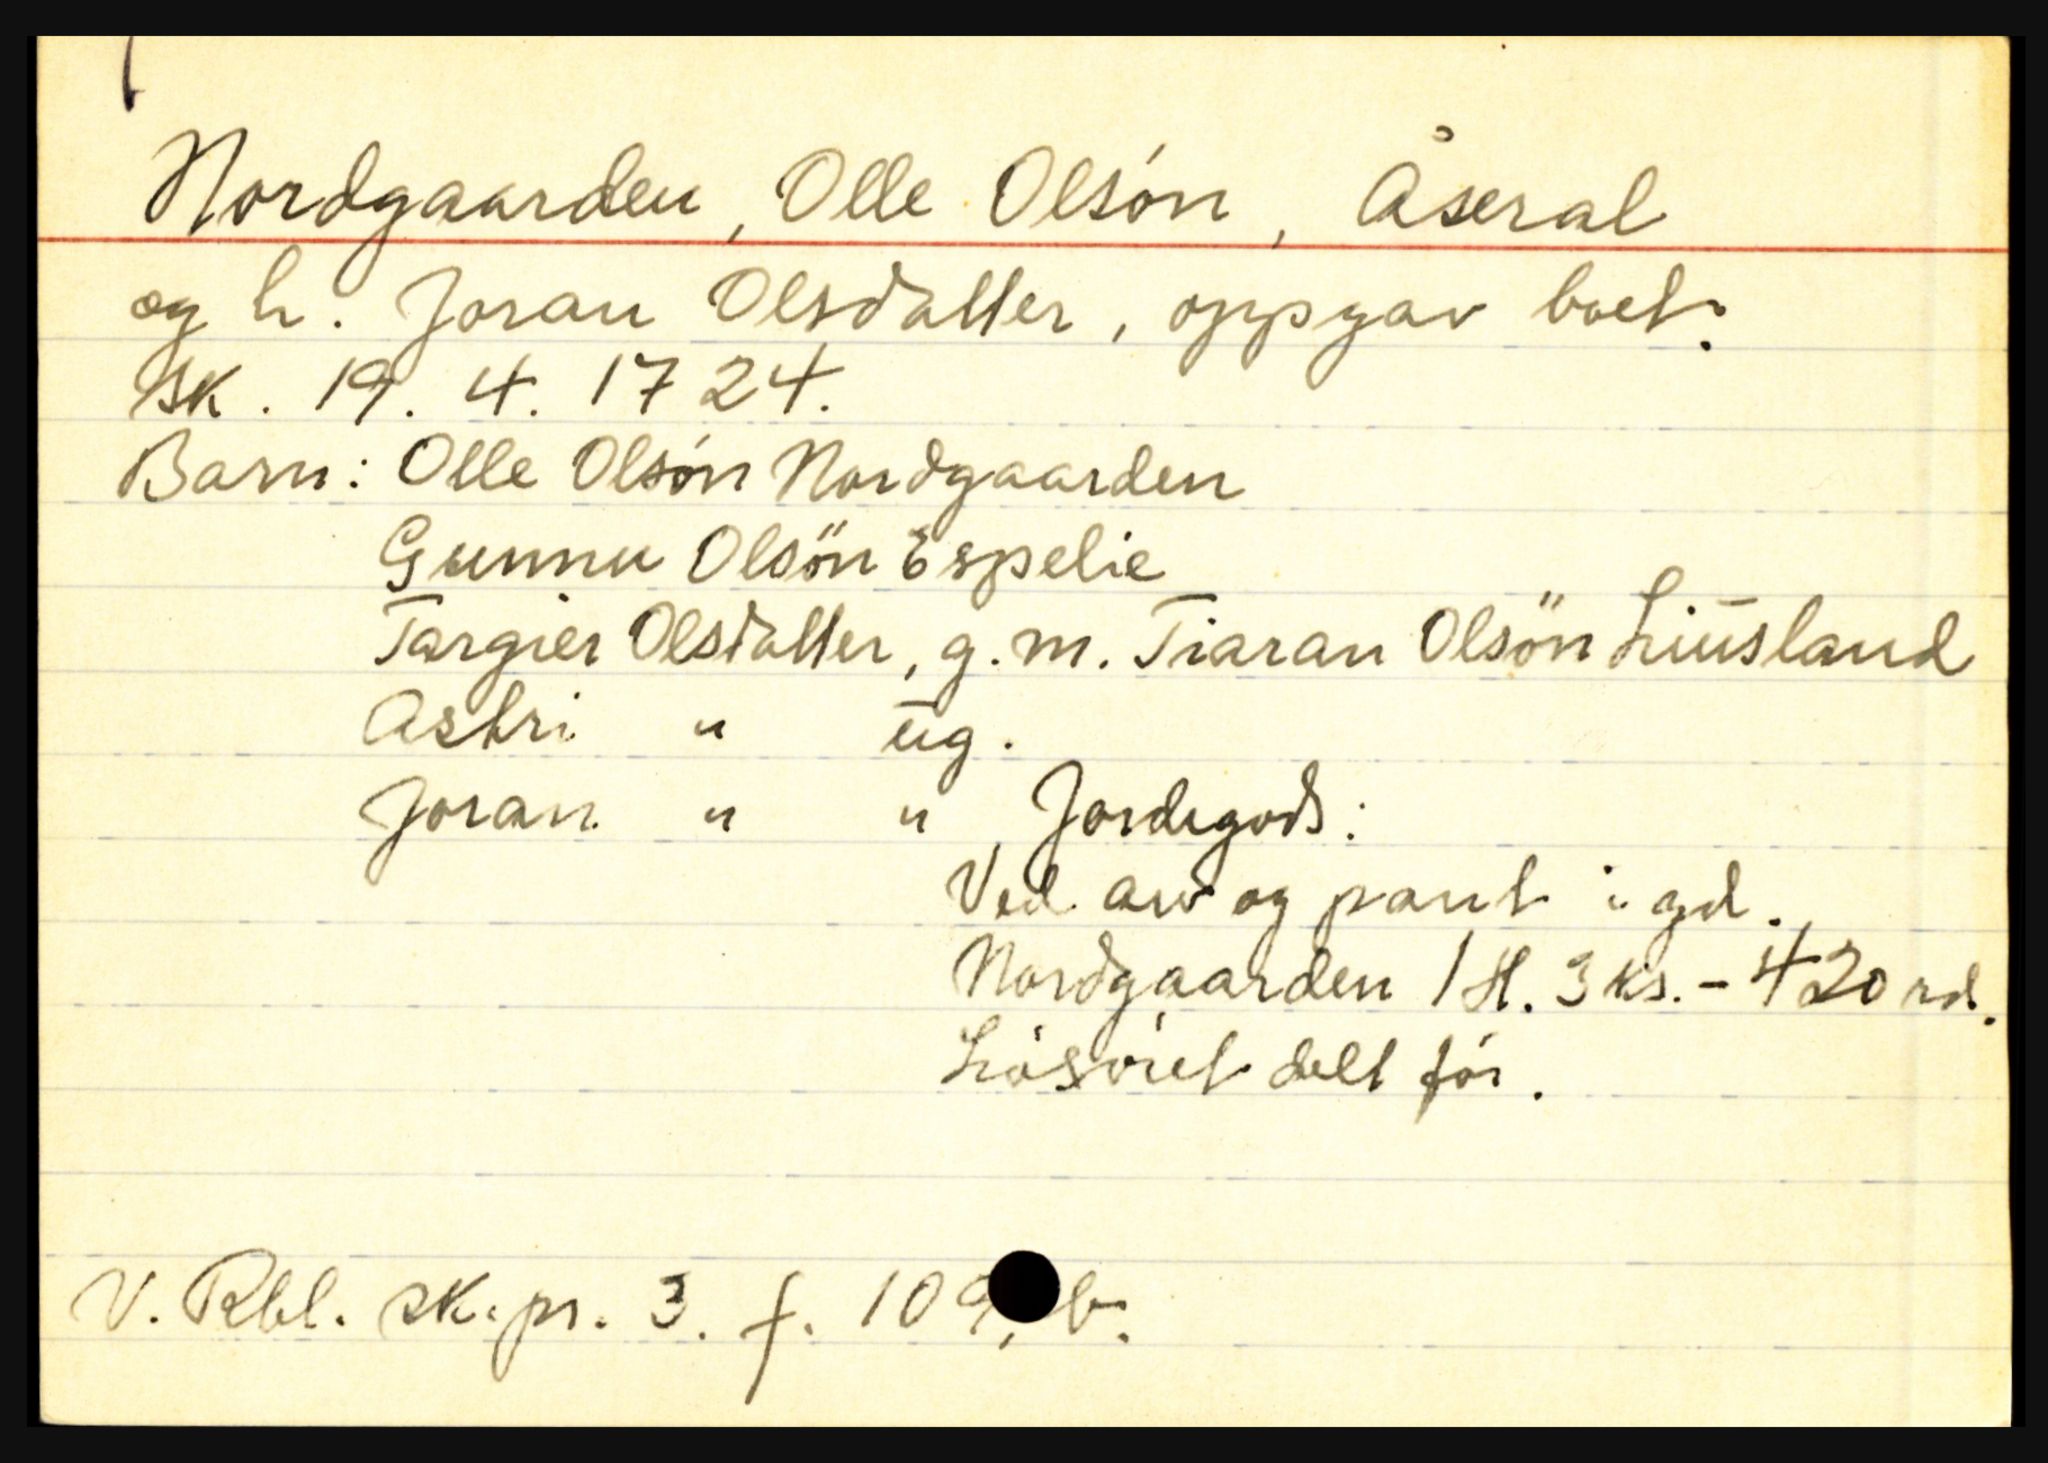 Nordgaarden, Olle Olsón, Åseral
og h. Joran Olsdatter, oppgav boet.
Sk. 19. 4. 1724.
Barn: Olle Olsón Nordgaarden
Gunnu Olsön Espelie
Targier Olsdatter, g.m. Tiaran Olsön Liūsland
Astri " ūg.
Joran " " Jordegods:
Ved arv og pant i gd.
Nordgaarden 1 H. 3 ks. - 420 rd.
Lösöret delt för.
V. Rbl. sk.pr. 3. f. 109, b.